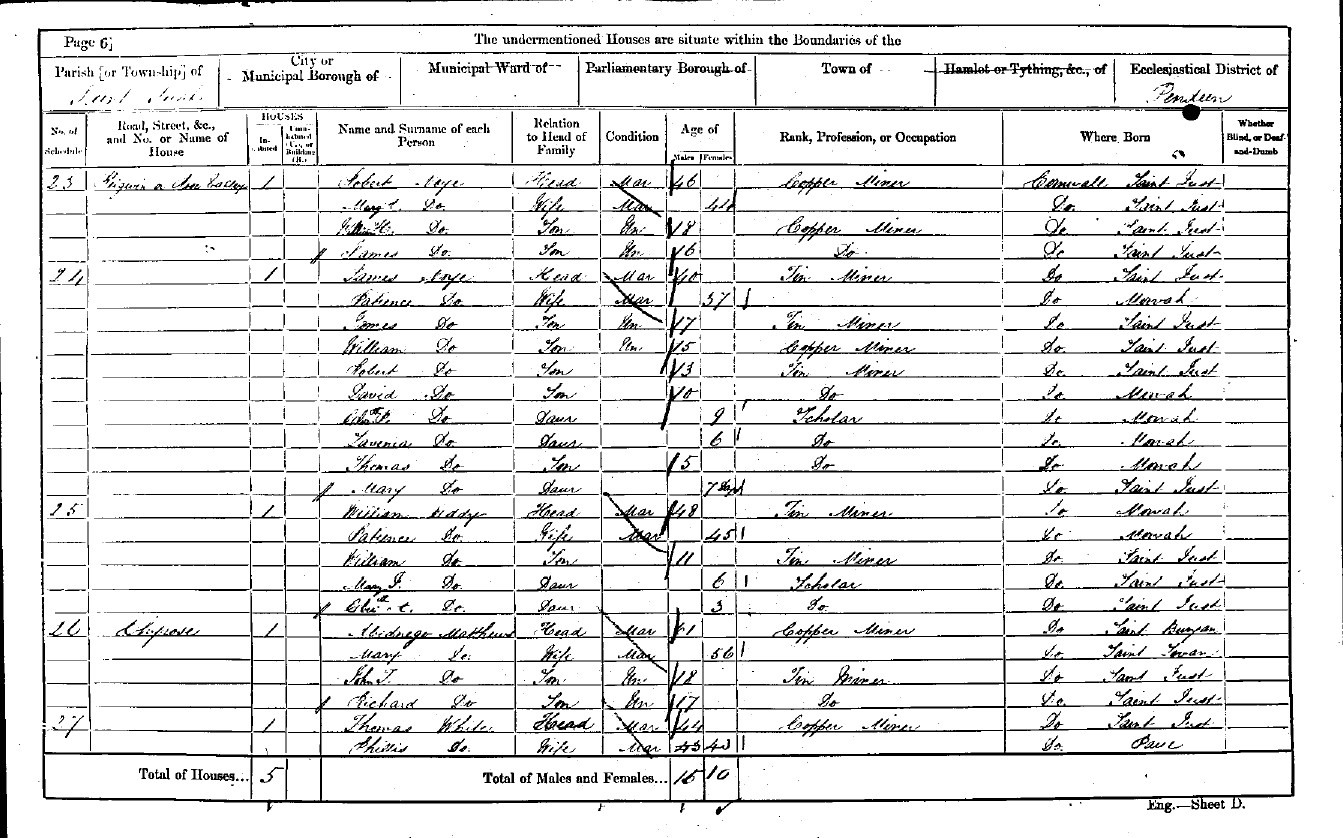 Page 6]
The undermentioned Houses are situate within the Boundaries of the
Parish [or Township] of
Saint Just
City or Municipal Borough of
Municipal Ward of
Parliamentary Borough of
Town of
Hamlet or Tything, &c., of
Ecclesiastical District of
Pendeen
No. of Schedule
Road, Street, &c., and No. or Name of House
HOUSES
In-habited
Unin-habited (U.), or Building (B.)
Name and Surname of each Person
Relation to Head of Family
Condition
Age of
Males
Females
Rank, Profession, or Occupation
Where Born
Whether Blind, or Deaf-and-Dumb
23 or 1 Robert Noye Head Mar 46 Copper Miner Cornwall Saint Just
Margt. Do Wife Mar 44 Do Saint Just
Wm H. Do Son Un 18 Copper Miner Do Saint Just
James Do Son Un 16 Do Do Saint Just
24 1 James Noye Head Mar 40 Tin Miner Do Saint Just
Patience Do Wife Mar 37 Do Morvah
James Do Son Un 17 Tin Miner Do Saint Just
William Do Son Un 15 Copper Miner Do Saint Just
Robert Do Son 13 Tin Miner Do Saint Just
David Do Son 10 Do Do Morvah
Do Daur 9 Scholar Do Morvah
Lavenia Do Daur 6 Do Do Morvah
Thomas Do Son 5 Do Do Morvah
Mary Do Daur 7 Days Do Saint Just
25 1 William Eddy Head Mar 48 Tin Miner Do Morvah
Patience Do Wife Mar 45 Do Morvah
William Do Son 11 Tin Miner Do Saint Just
Mary J. Do Daur 6 Scholar Do Saint Just
Elizth A. Do Daur 3 Do Do Saint Just
26 Chyrose 1 Abidnego Matthews Head Mar 61 Copper Miner Do Saint Buryan
Mary Do Wife Mar 56 Do Saint
John T. Do Son Un 18 Tin Miner Do Saint Just
Richard Do Son Un 17 Do Do Saint Just
27 1 Thomas White Head Mar 44 Copper Miner Do Saint Just
Phillis Do Wife Mar 43 43 Do Paul
Total of Houses... 5
Total of Males and Females... 15 10
Eng.—Sheet D.